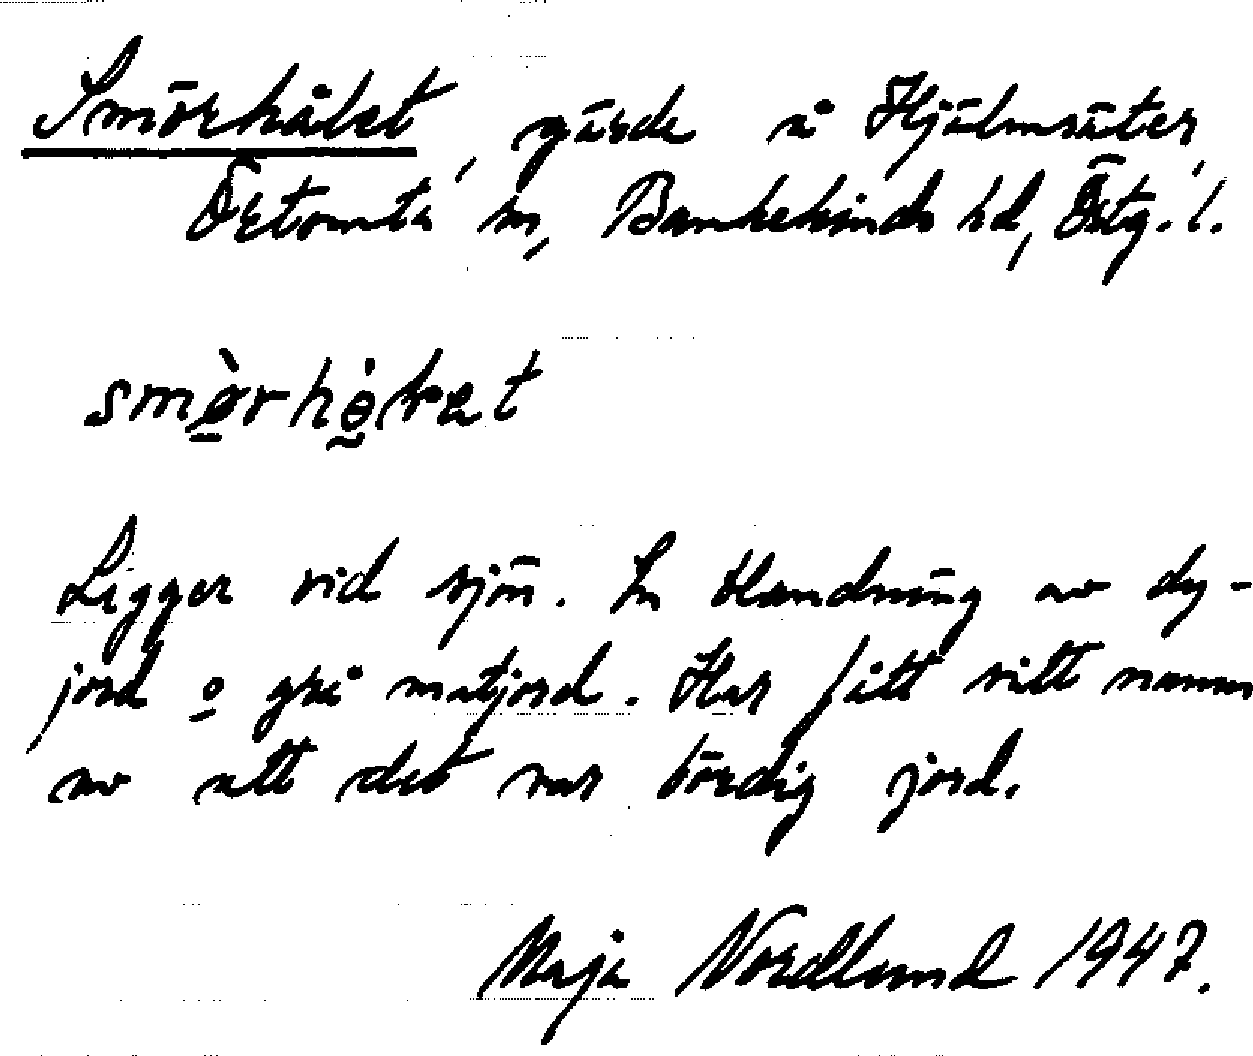 Smörhålet, gärde å Hjälmsäter,
Örtomta sn, Bankekinds hd, Östg. l.
Ligger vid sjön. En blandning av dy-
jord o grå matjord. Har fått sitt namn
av att det var bördig jord.
Maja Nordlund 1947.